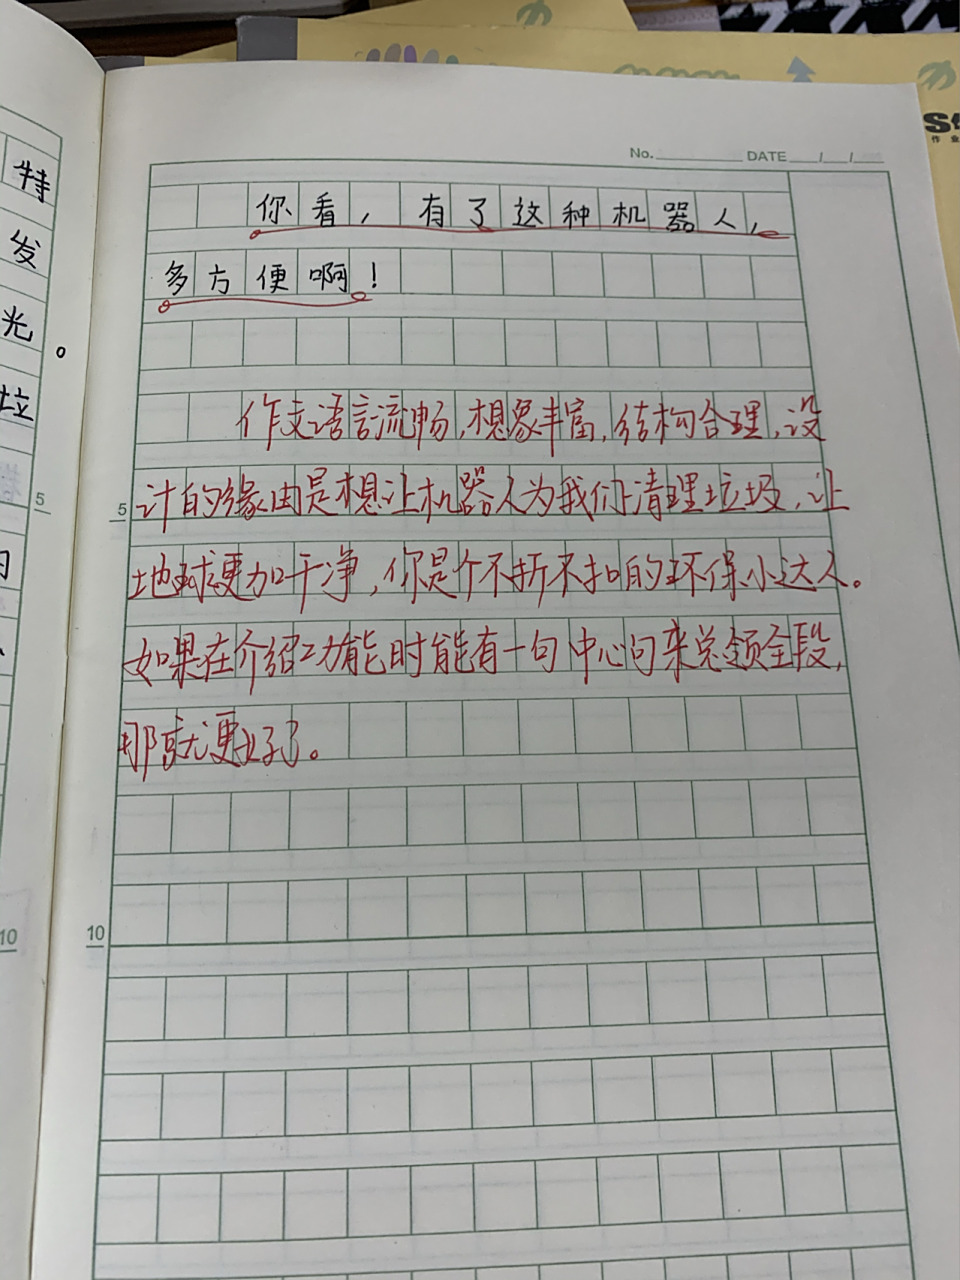 特
发
光。
垃
No. DATE / /
你看，有了这种机器人，
多方便啊！
作文语言流畅，想象丰富，结构合理，设
5 计的缘由是想让机器人为我们清理垃圾，让
地球更加干净，你是个不折不扣的环保小达人。
如果在介绍功能时能有一句中心句来总领全段，
那就更好了。
10
5
10
作业